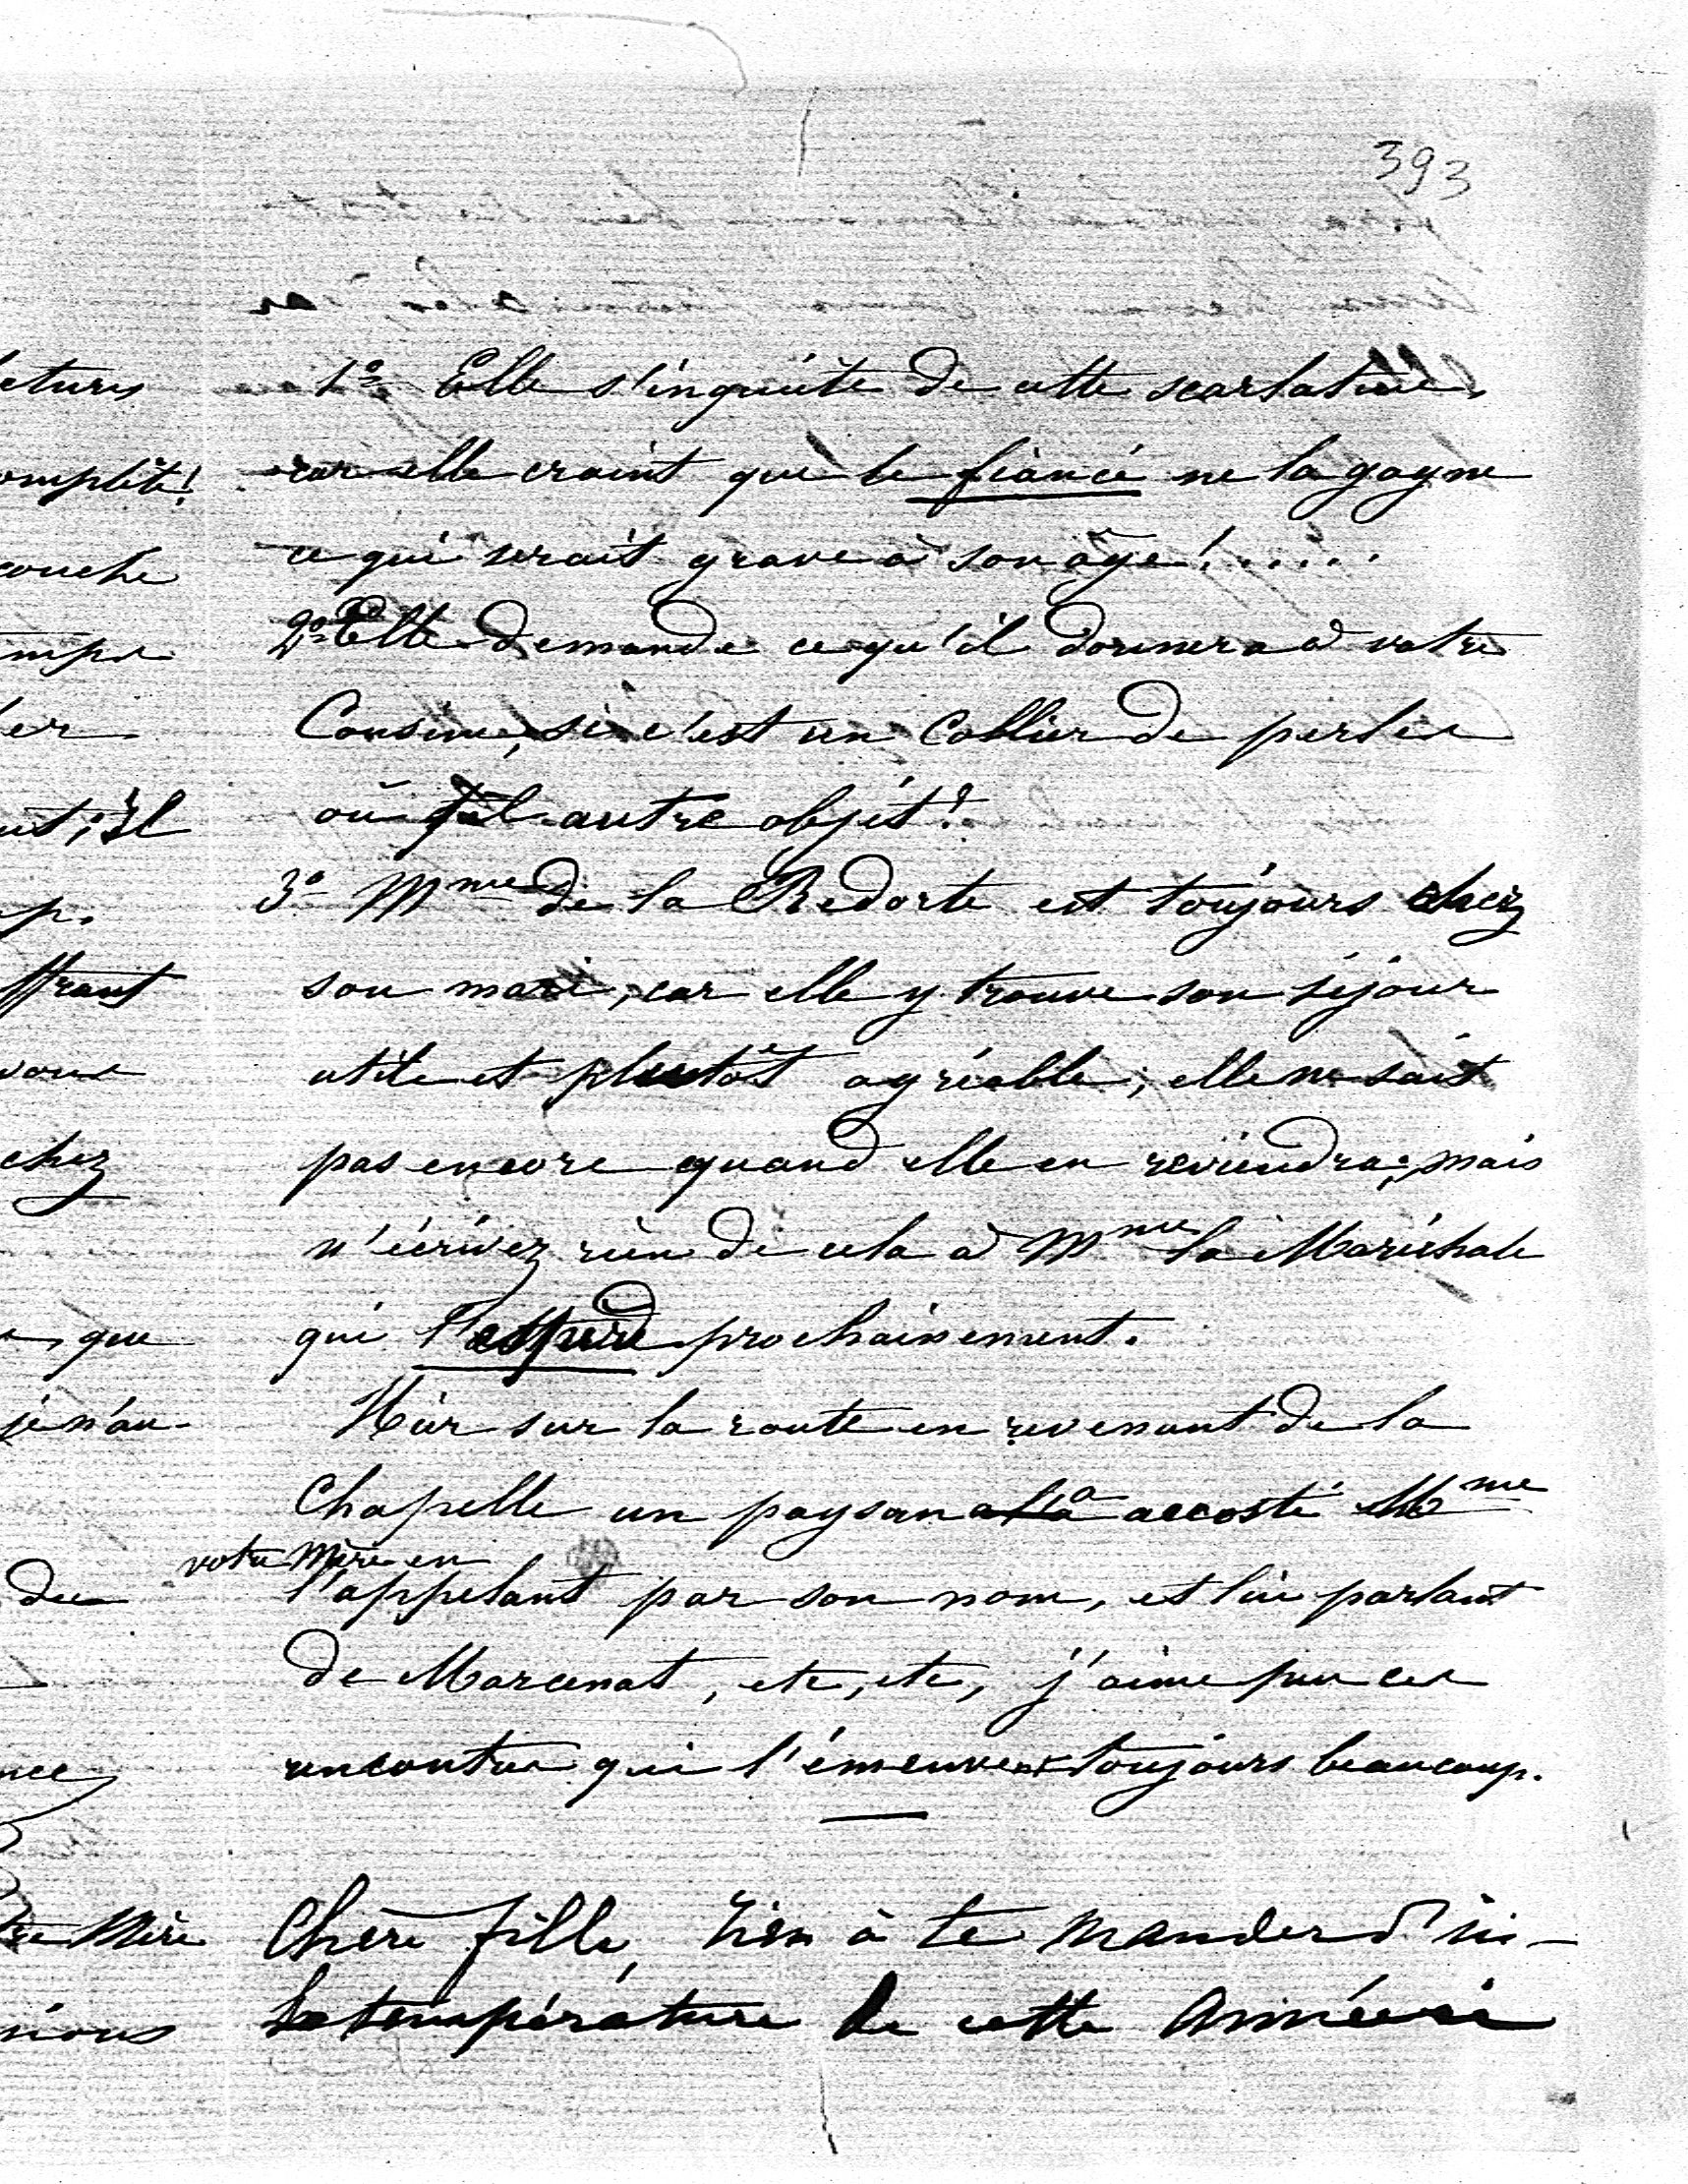 393
1º Elle s'inquiète de cette scarlatine,
car elle craint que le fiancé ne la gagne
ce qui serait grave à son âge!.....
2º Elle demande ce qu'il donnera à votre
Cousine, si c'est un Collier de perles
ou tel autre objet?
3º Mme de la Redorte est toujours chez
son mari, car elle y trouve son séjour
utile et plutôt agréable; elle ne sait
pas encore quand elle en reviendra; mais
n'écrivez rien de cela à Mme la Maréchale
qui l'attend prochainement.
Hier sur la route en revenant de la
Chapelle un paysan a accosté Mme
votre Mère en
l'appelant par son nom, et lui parlant
de Marcenat, etc, etc, j'aime peu ces
rencontres qui l'émeuvent toujours beaucoup.
Chère fille, rien à te mander d'ici -
la température de cette
eturs
omplète!
couche
er
ut; il
p.
ffrant
vous
chez
que
je n'au-
du
Mère
nous